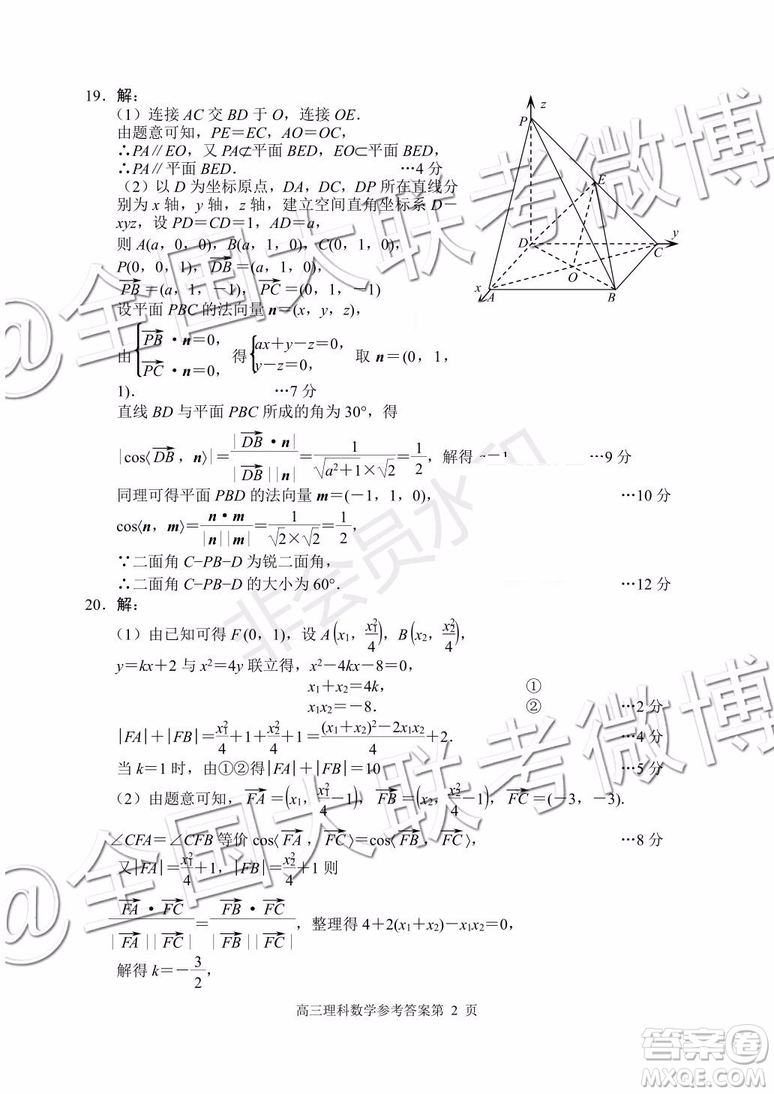 19．解：
（1）连接 AC 交 BD 于 O，连接 OE．
由题意可知，PE＝EC，AO＝OC，
∴PA∥EO，又 PA⊄平面 BED，EO⊂平面 BED，
∴PA∥平面 BED． …4 分
（2）以 D 为坐标原点，DA，DC，DP 所在直线分
别为 x 轴，y 轴，z 轴，建立空间直角坐标系 D－
xyz，设 PD＝CD＝1，AD＝a，
则 A(a，0，0)，B(a，1，0)，C(0，1，0)，
P(0，0，1)，\overrightarrow{DB}＝(a，1，0)，
\overrightarrow{PB}＝(a，1，－1)，\overrightarrow{PC}＝(0，1，－1)
z
P
E
D
y
C
O
x
A
B
设平面 PBC 的法向量 n＝(x，y，z)，
由 {\overrightarrow{PB}·n＝0，\overrightarrow{PC}·n＝0， 得 {ax＋y－z＝0，y－z＝0， 取 n＝(0，1，
1)． …7 分
直线 BD 与平面 PBC 所成的角为 30°，得
|cos⟨\overrightarrow{DB}，n⟩|＝\frac{|\overrightarrow{DB}·n|}{|\overrightarrow{DB}||n|}＝\frac{1}{\sqrt{a^2＋1}×\sqrt{2}}＝\frac{1}{2}，解得 …9 分
同理可得平面 PBD 的法向量 m＝(－1，1，0)， …10 分
cos⟨n，m⟩＝\frac{n·m}{|n||m|}＝\frac{1}{\sqrt{2}×\sqrt{2}}＝\frac{1}{2}，
∵二面角 C－PB－D 为锐二面角，
∴二面角 C－PB－D 的大小为 60°． …12 分
20．解：
（1）由已知可得 F (0，1)，设 A(x₁，\frac{x₁²}{4})，B(x₂，\frac{x₂²}{4})，
y＝kx＋2 与 x²＝4y 联立得，x²－4kx－8＝0，
x₁＋x₂＝4k， ①
x₁x₂＝－8． ② …2 分
|FA|＋|FB|＝\frac{x₁²}{4}＋1＋\frac{x₂²}{4}＋1＝\frac{(x₁＋x₂)²－2x₁x₂}{4}＋2． …4 分
当 k＝1 时，由①②得|FA|＋|FB|＝10 …5 分
（2）由题意可知，\overrightarrow{FA}＝(x₁，\frac{x₁²}{4}－1)，\overrightarrow{FB}＝(x₂，\frac{x₂²}{4}－1)，\overrightarrow{FC}＝(－3，－3)．
∠CFA＝∠CFB 等价 cos⟨\overrightarrow{FA}，\overrightarrow{FC}⟩＝cos⟨\overrightarrow{FB}，\overrightarrow{FC}⟩， …8 分
又|FA|＝\frac{x₁²}{4}＋1，|FB|＝\frac{x₂²}{4}＋1 则
\frac{\overrightarrow{FA}·\overrightarrow{FC}}{|\overrightarrow{FA}||\overrightarrow{FC}|}＝\frac{\overrightarrow{FB}·\overrightarrow{FC}}{|\overrightarrow{FB}||\overrightarrow{FC}|}，整理得 4＋2(x₁＋x₂)－x₁x₂＝0，
解得 k＝－\frac{3}{2}，
高三理科数学参考答案第 2 页
@全国大联考微博
@全国大联考微博
非会员水印
答案卷
MXQE.COM